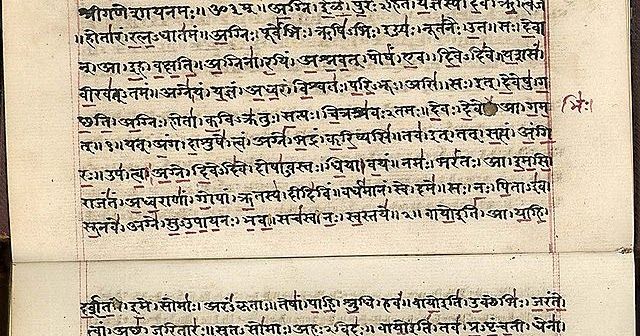 श्रीगणेशायनमः॥ ॐ३म्॥ अग्निं। ईळे। पुरः२हितं। यज्ञस्य। देवं। ऋत्विजं
॥होतारं। रत्न२धातमं। अग्निः। पूर्वेभिः। ऋषिभिः। ईड्यः। नूतनैः। उत। सः। देवा
न्। आ। इह। वक्षति। अग्निना। रयिं। अश्नवत्। पोषं। एव। दिवे२दिवे। यशसं
वीरवत्२तमं। अग्ने। यं। यज्ञं। अध्वरं। विश्वतः। परि२भूः। असि। सः। इत्। देवेषु। ग
च्छति। अग्निः। होता। कवि२क्रतुः। सत्यः। चित्रश्रवः२तमः। देवः। देवे। आ। गम
भिः।
त्॥१॥ यत्। अंग। दाशुषे। त्वं। अग्ने। भद्रं। करिष्यसि। तव। इत्। तत्। सत्यं। अंगि
रः। उप। त्वा। अग्ने। दिवे२दिवे। दोषा२वस्तः। धिया। वयं। नमः। भरंतः। आ। इमसि
राजंतं। अध्वराणां। गोपां। ऋतस्य। दीदिविं। वर्धमानं। स्वे। दमे। सः। नः। पिता२इव
सूनवे। अग्ने। सु२उपायनः। भव। सचस्व। नः। स्वस्तये॥२॥ वायोइति। आ। याहि
दर्शत। इमे। सोमाः। अरं२कृताः। तेषां। पाहि। श्रुधि। हवं। वायोइति। उक्थेभिः। जरंते
त्वां। अच्छ। जरितारः। सुत२सोमाः। अहः२विदः। वायोइति। तव। प्र२पृंचती। धेना